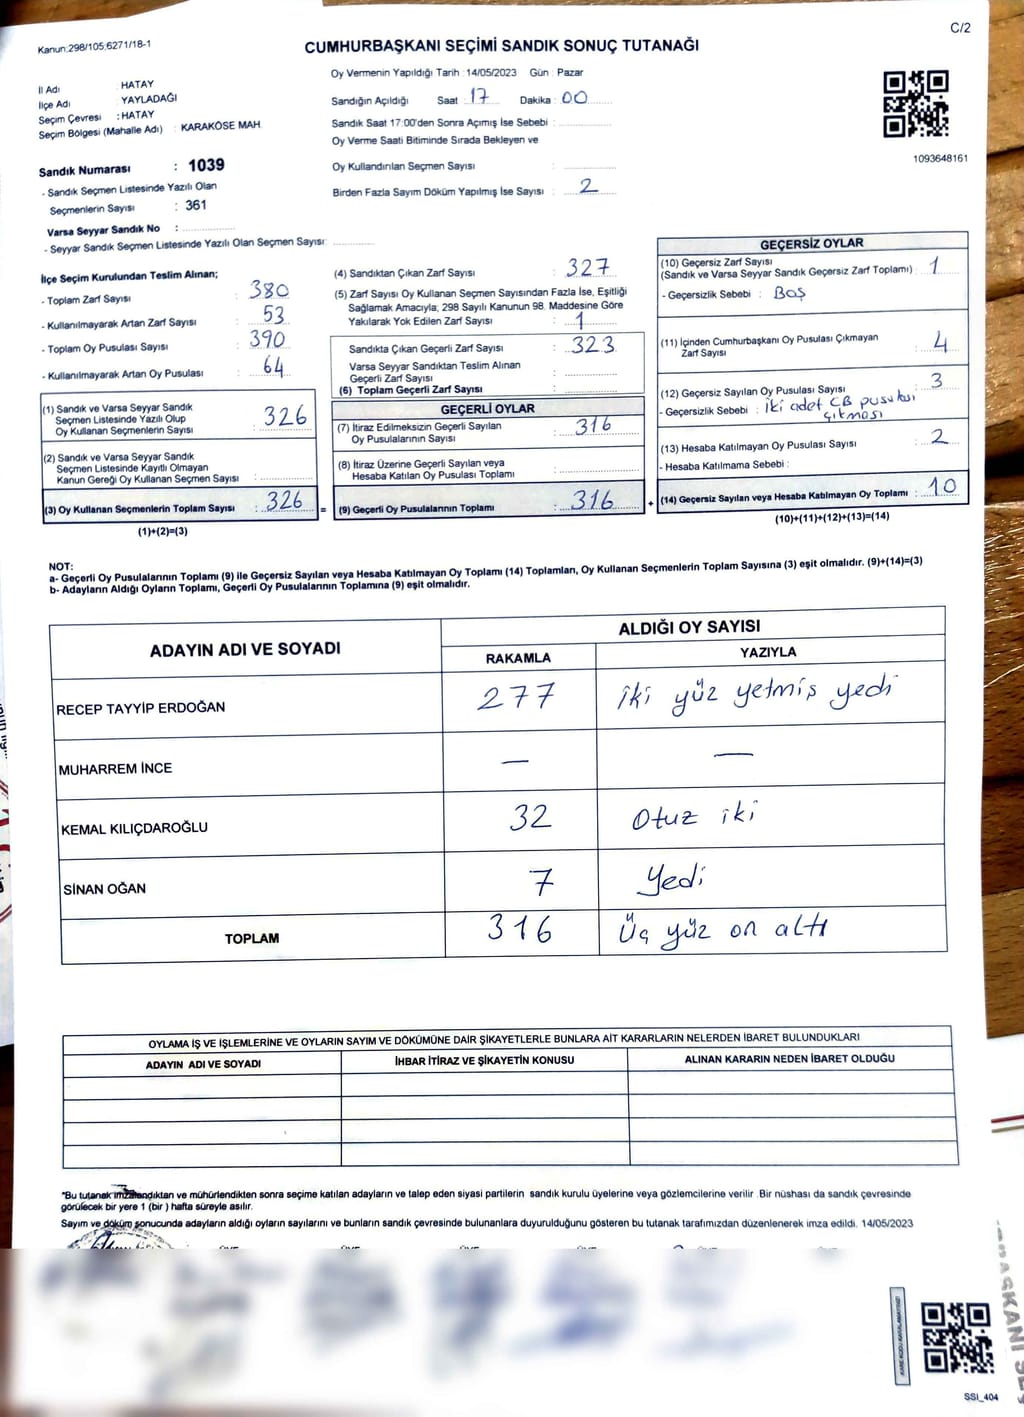 C/2
Kanun:298/105;6271/18-1
CUMHURBAŞKANI SEÇİMİ SANDIK SONUÇ TUTANAĞI
İl Adı : HATAY
İlçe Adı : YAYLADAĞI
Seçim Çevresi : HATAY
Seçim Bölgesi (Mahalle Adı) : KARAKÖSE MAH.
Sandık Numarası : 1039
- Sandık Seçmen Listesinde Yazılı Olan
Seçmenlerin Sayısı : 361
Varsa Seyyar Sandık No :
- Seyyar Sandık Seçmen Listesinde Yazılı Olan Seçmen Sayısı:
Oy Vermenin Yapıldığı Tarih : 14/05/2023 Gün : Pazar
Sandığın Açıldığı Saat : 17 Dakika : 00
Sandık Saat 17:00'den Sonra Açımış İse Sebebi :
Oy Verme Saati Bitiminde Sırada Bekleyen ve
Oy Kullandırılan Seçmen Sayısı :
Birden Fazla Sayım Döküm Yapılmış İse Sayısı : 2
1093648161
İlçe Seçim Kurulundan Teslim Alınan;
- Toplam Zarf Sayısı : 380
- Kullanılmayarak Artan Zarf Sayısı : 53
- Toplam Oy Pusulası Sayısı : 390
- Kullanılmayarak Artan Oy Pusulası : 64
(1) Sandık ve Varsa Seyyar Sandık
Seçmen Listesinde Yazılı Olup
Oy Kullanan Seçmenlerin Sayısı : 326
(2) Sandık ve Varsa Seyyar Sandık
Seçmen Listesinde Kayıtlı Olmayan
Kanun Gereği Oy Kullanan Seçmen Sayısı :
(3) Oy Kullanan Seçmenlerin Toplam Sayısı : 326 =
(1)+(2)=(3)
(4) Sandıktan Çıkan Zarf Sayısı : 327
(5) Zarf Sayısı Oy Kullanan Seçmen Sayısından Fazla İse, Eşitliği
Sağlamak Amacıyla; 298 Sayılı Kanunun 98. Maddesine Göre
Yakılarak Yok Edilen Zarf Sayısı : 1
Sandıkta Çıkan Geçerli Zarf Sayısı : 323
Varsa Seyyar Sandıktan Teslim Alınan
Geçerli Zarf Sayısı :
(6) Toplam Geçerli Zarf Sayısı :
GEÇERLİ OYLAR
(7) İtiraz Edilmeksizin Geçerli Sayılan
Oy Pusulalarının Sayısı : 316
(8) İtiraz Üzerine Geçerli Sayılan veya
Hesaba Katılan Oy Pusulası Toplamı :
(9) Geçerli Oy Pusulalarının Toplamı : 316 +
GEÇERSİZ OYLAR
(10) Geçersiz Zarf Sayısı
(Sandık ve Varsa Seyyar Sandık Geçersiz Zarf Toplamı) : 1
- Geçersizlik Sebebi : BOŞ
(11) İçinden Cumhurbaşkanı Oy Pusulası Çıkmayan
Zarf Sayısı : 4
(12) Geçersiz Sayılan Oy Pusulası Sayısı : 3
- Geçersizlik Sebebi : iki adet CB pusulası
çıkması
(13) Hesaba Katılmayan Oy Pusulası Sayısı : 2
- Hesaba Katılmama Sebebi :
(14) Geçersiz Sayılan veya Hesaba Katılmayan Oy Toplamı : 10
(10)+(11)+(12)+(13)=(14)
NOT:
a- Geçerli Oy Pusulalarının Toplamı (9) ile Geçersiz Sayılan veya Hesaba Katılmayan Oy Toplamı (14) Toplamları, Oy Kullanan Seçmenlerin Toplam Sayısına (3) eşit olmalıdır. (9)+(14)=(3)
b- Adayların Aldığı Oyların Toplamı, Geçerli Oy Pusulalarının Toplamına (9) eşit olmalıdır.
ADAYIN ADI VE SOYADI ALDIĞI OY SAYISI
RAKAMLA YAZIYLA
RECEP TAYYİP ERDOĞAN 277 iki yüz yetmiş yedi
MUHARREM İNCE — —
KEMAL KILIÇDAROĞLU 32 Otuz iki
SİNAN OĞAN 7 Yedi
TOPLAM 316 Üç yüz on altı
OYLAMA İŞ VE İŞLEMLERİNE VE OYLARIN SAYIM VE DÖKÜMÜNE DAİR ŞİKAYETLERLE BUNLARA AİT KARARLARIN NELERDEN İBARET BULUNDUKLARI
ADAYIN ADI VE SOYADI İHBAR İTİRAZ VE ŞİKAYETİN KONUSU ALINAN KARARIN NEDEN İBARET OLDUĞU
*Bu tutanak imzalandıktan ve mühürlendikten sonra seçime katılan adayların ve talep eden siyasi partilerin sandık kurulu üyelerine veya gözlemcilerine verilir .Bir nüshası da sandık çevresinde
görülecek bir yere 1 (bir ) hafta süreyle asılır.
Sayım ve döküm sonucunda adayların aldığı oyların sayılarını ve bunların sandık çevresinde bulunanlara duyurulduğunu gösteren bu tutanak tarafımızdan düzenlenerek imza edildi. 14/05/2023
SSI_404